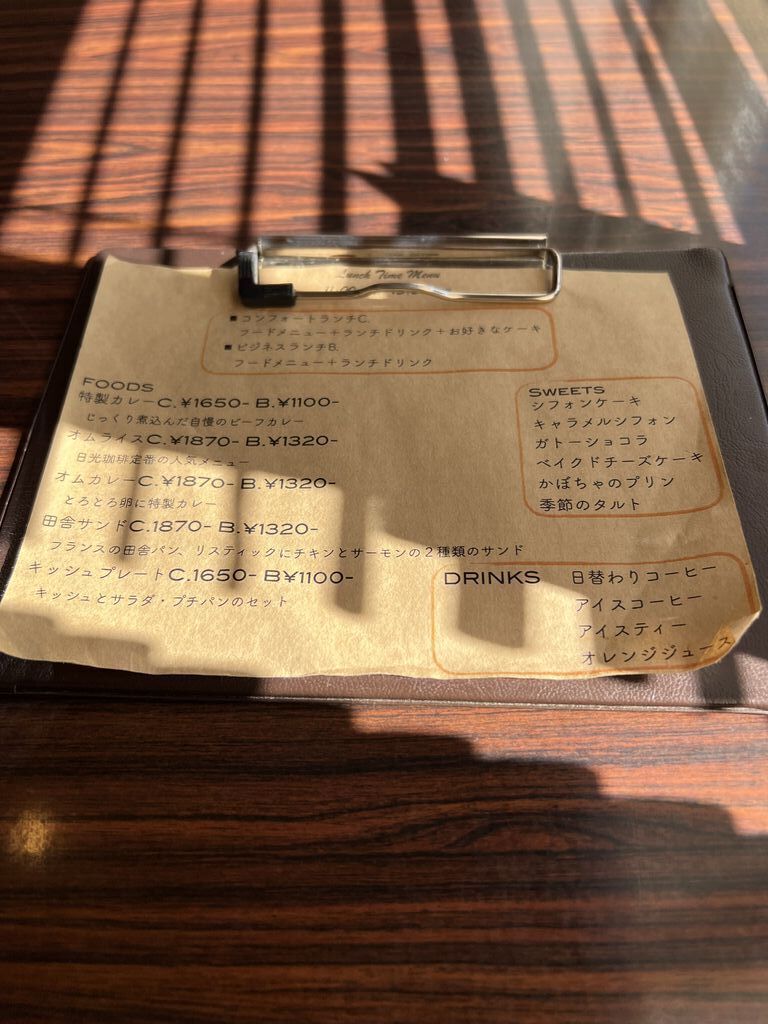 Lunch Time Menu
■コンフォートランチC.
フードメニュー+ランチドリンク+お好きなケーキ
■ビジネスランチB.
フードメニュー+ランチドリンク
FOODS
特製カレーC.¥1650- B.¥1100-
じっくり煮込んだ自慢のビーフカレー
オムライスC.¥1870- B.¥1320-
日光珈琲定番の人気メニュー
オムカレーC.¥1870- B.¥1320-
とろとろ卵に特製カレー
田舎サンドC.1870- B.¥1320-
フランスの田舎パン、リスティックにチキンとサーモンの2種類のサンド
キッシュプレートC.1650- B¥1100-
キッシュとサラダ・プチパンのセット
SWEETS
シフォンケーキ
キャラメルシフォン
ガトーショコラ
ベイクドチーズケーキ
かぼちゃのプリン
季節のタルト
DRINKS 日替わりコーヒー
アイスコーヒー
アイスティー
オレンジジュース